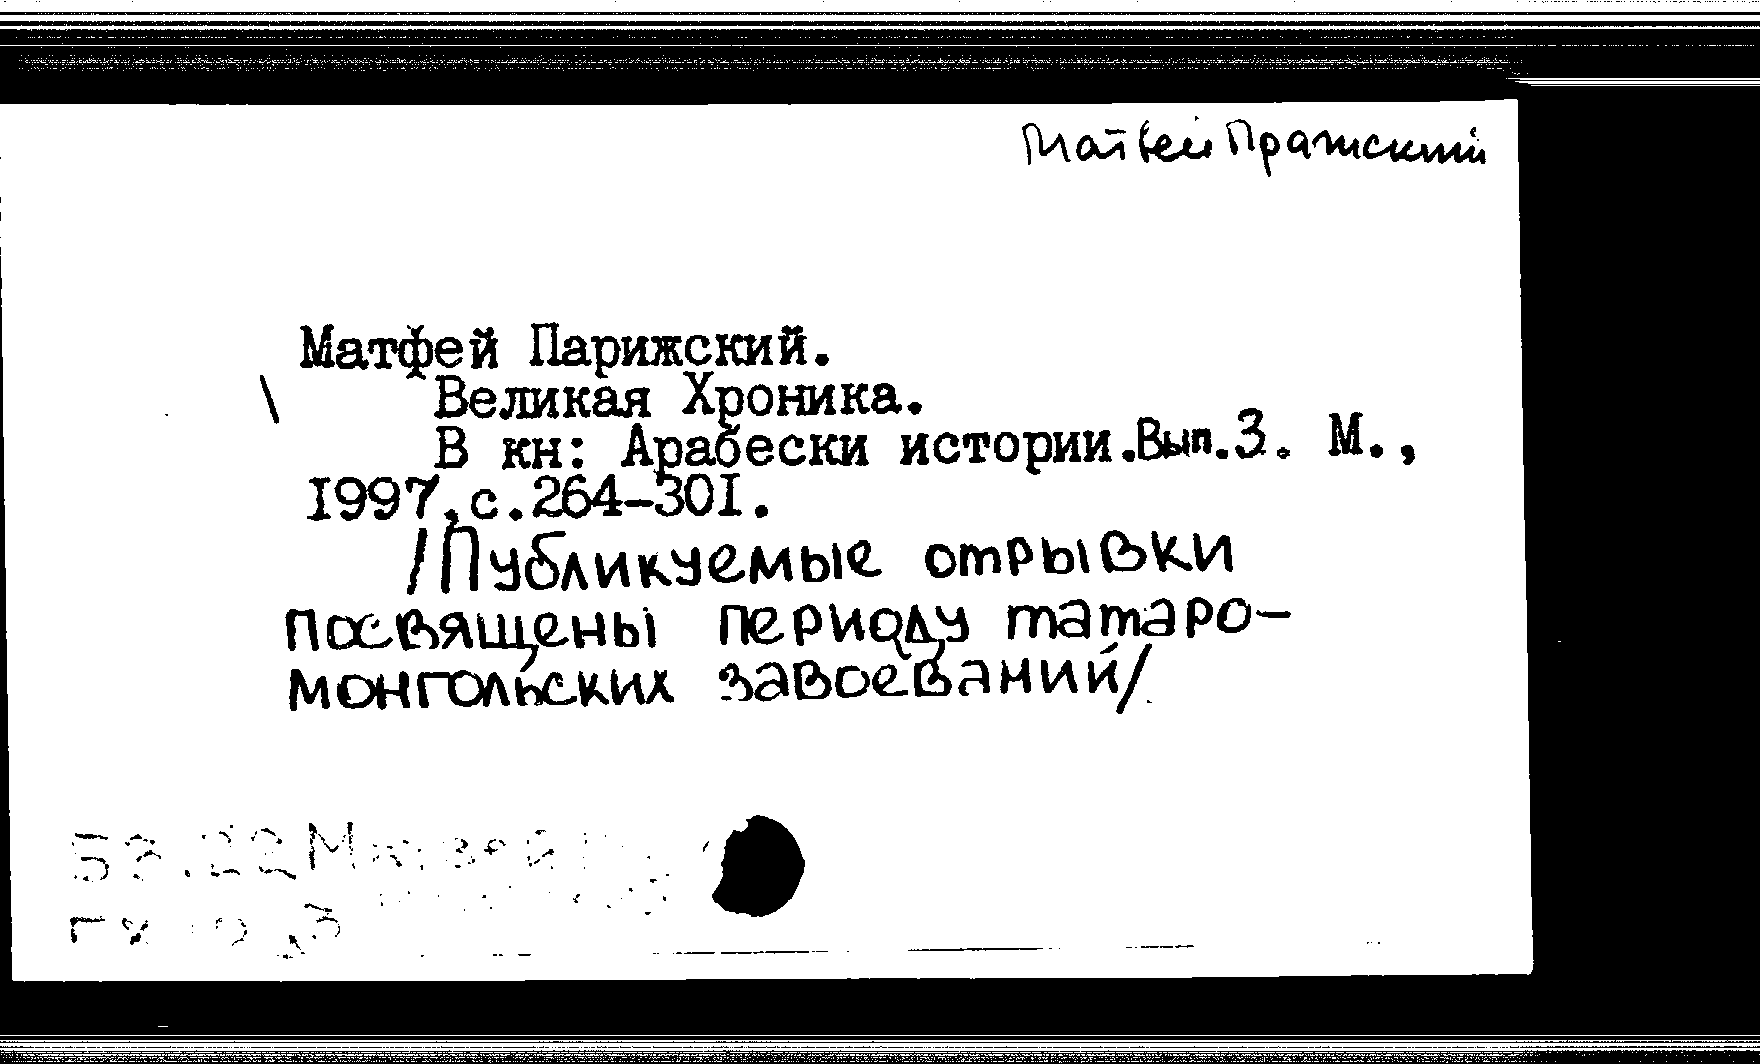 Матвей Пражский
Матфей Парижский.
Великая Хроника.
В кн: Арабески истории.Вып.3. М.,
I997,с.264-30I.
/Публикуемые отрывки
посвящены периоду татаро-
монгольских завоеваний/